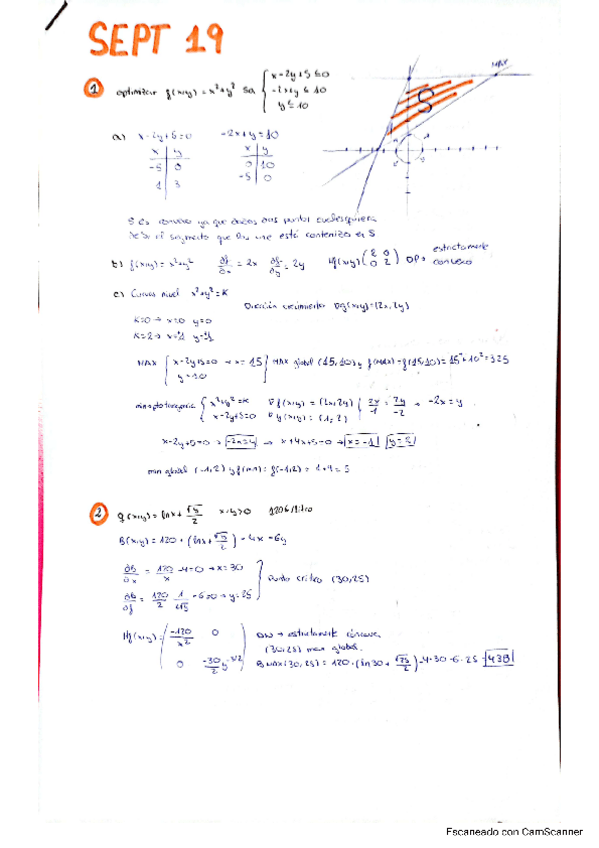 SEPT 19
1 optimizar f(x,y) = x²+y² sa { x-2y+5≤0
-2x+y≤10
y≤10
MAX
S
a) x-2y+5=0 -2x+y=10
x y x y
-5 0 0 10
1 3 -5 0
S es convexo ya que dados dos puntos cualesquiera
de S el segmento que los une está contenido en S
b) f(x,y) = x²+y² ∂f/∂x = 2x ∂f/∂y = 2y Hf(x,y) (2 0 / 0 2) DP → estrictamente convexa
c) Curvas nivel x²+y²=K
Dirección crecimiento ∇f(x,y)=(2x,2y)
K=0 → x=0 y=0
K=2 → x=±1 y=±1
MAX { x-2y+5=0 → x=15
y=10 } MAX global (15,10) y f(MAX)=f(15,10)=15²+10²=325
min pto tangencia { x²+y²=K ∇f(x,y) = (2x,2y)
x-2y+5=0 ∇g(x,y) = (1,-2) } 2x/-1 = 2y/-2 → -2x=y
x-2y+5=0 → -2x=y → x+4x+5=0 → x=-1
min global (-1,2) y f(min)= f(-1,2) = 1+4 = 5
2 q(x,y) = lnx + √y/2 x,y>0 120€/litro
B(x,y) = 120 · (lnx + √y/2) - 4x - 6y
∂B/∂x = 120/x - 4 = 0 → x=30
Punto crítico (30,25)
Hf(x,y) = ( -120/x² 0
0 -30/2 y^-3/2 )
DN → estrictamente cóncava
(30,25) max global.
B max (30,25) = 120·(ln30 + √25/2) - 4·30 - 6·25 = 438
Escaneado con CamScanner